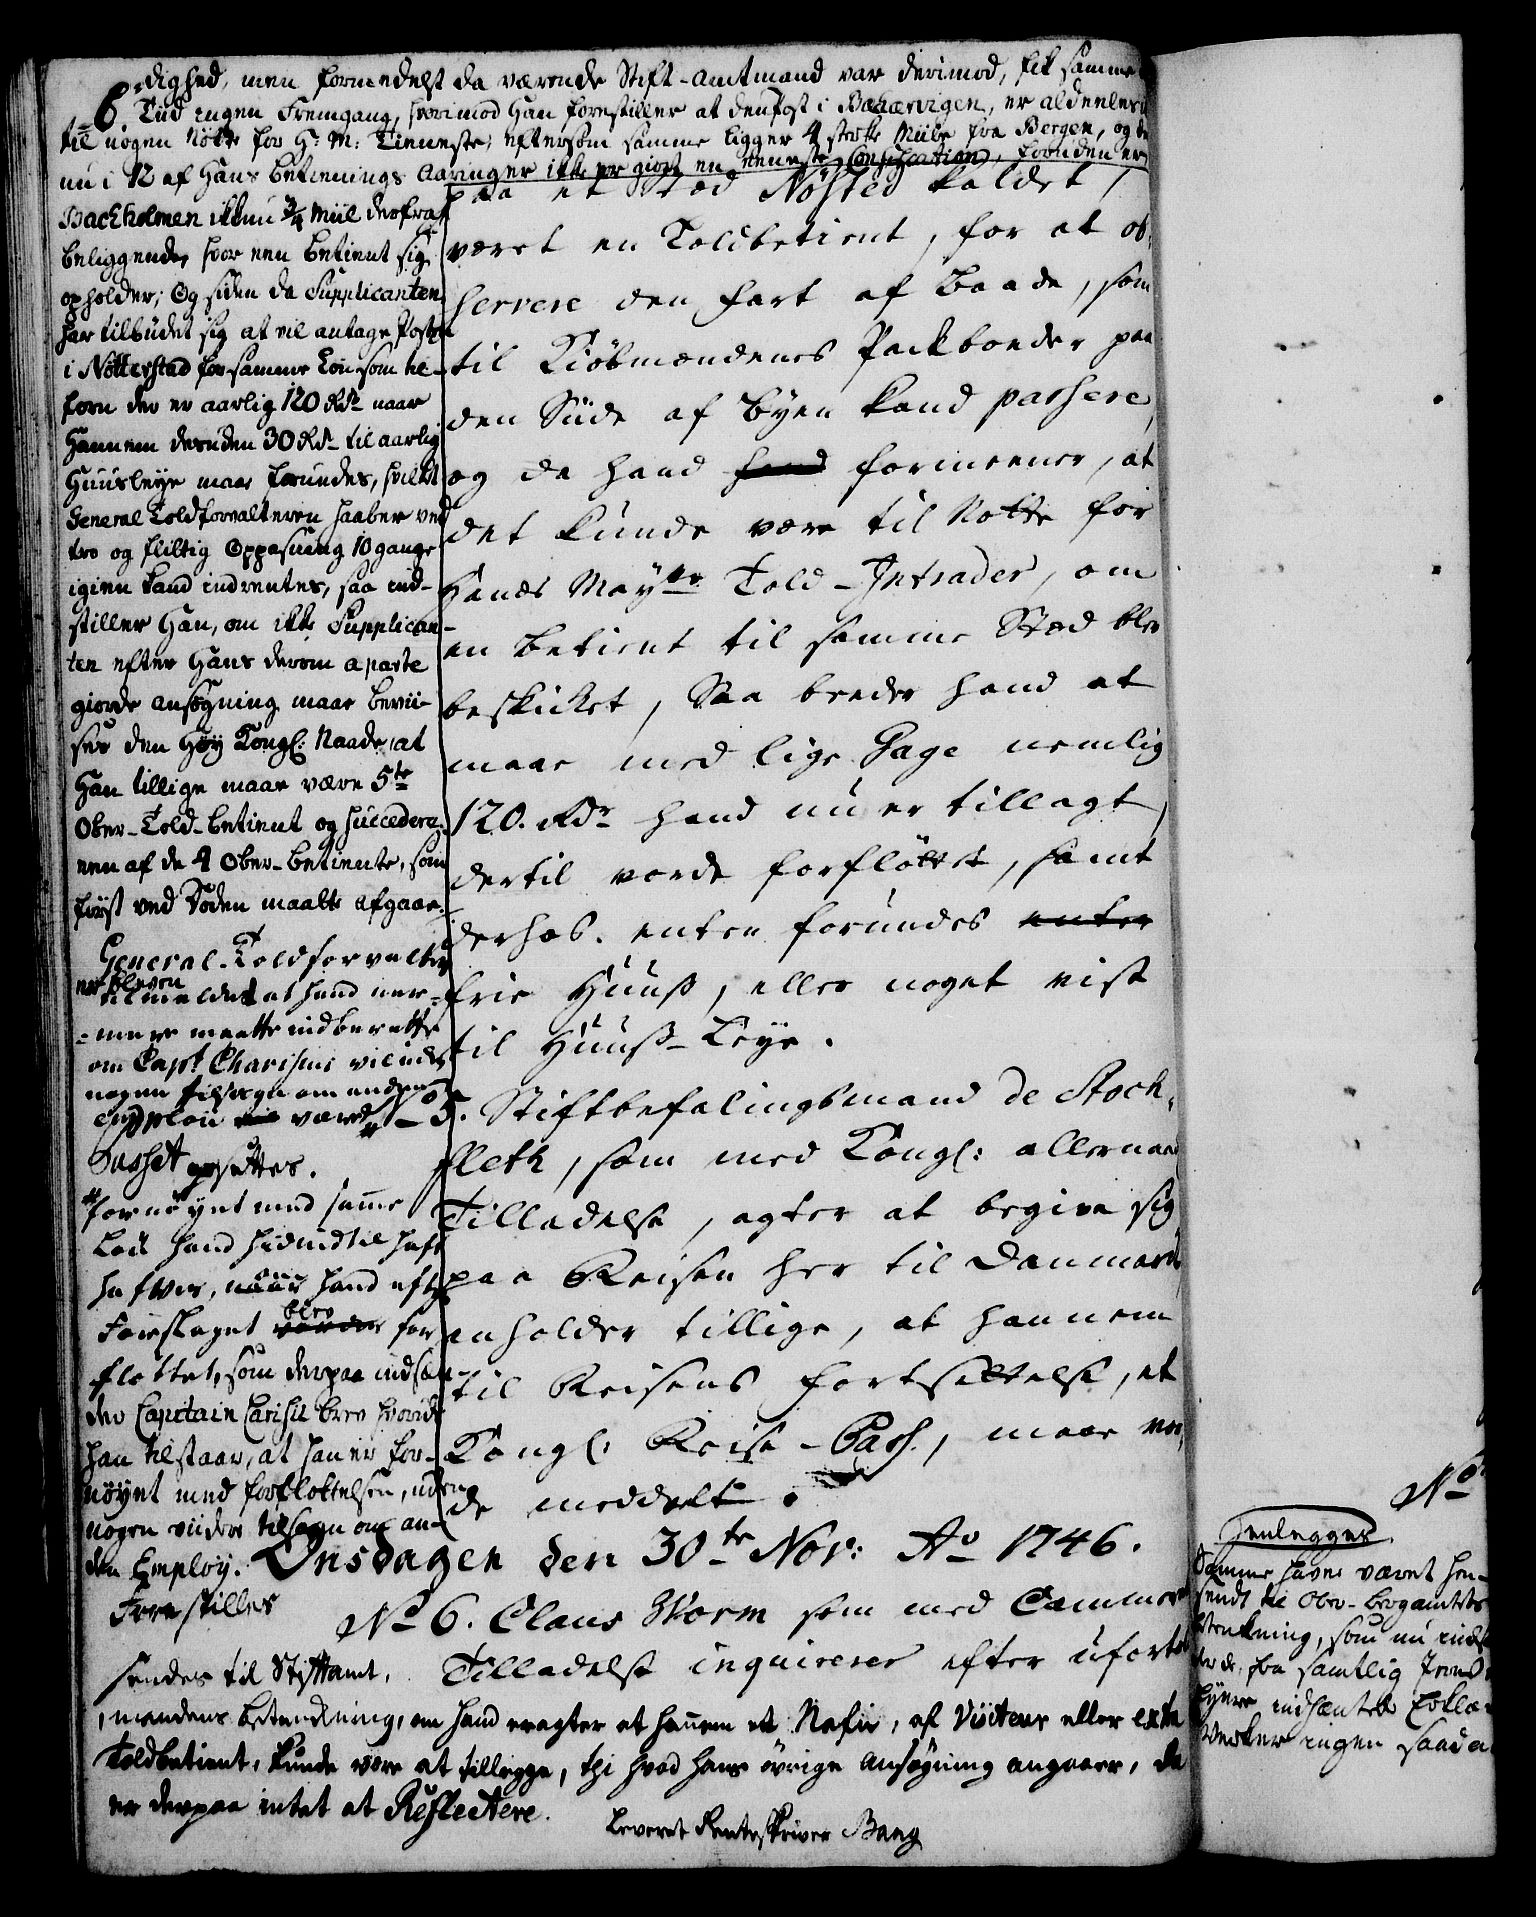 dighed, men formedelst da værende Stift-amtmand var derimod, fik samme
Tid ingen Fremgang, hvorimod Han forestiller at den Post i Bukarvigen, er aldeeles
til nogen Nötte for H: M: Tienneste, eftersom samme ligger 4 sterke Miile fra Bergen, og der
nu i 12 af Hans betienings Aaringer ikke er giort en eeneste Confiscation, foruden er
Backholmen ikkun 3/4 Miil derfra
beliggende, hvor een betient sig
opholder; Og siden da Supplicanten
har tilbudet sig at vil antage Posten
i Nöttestad for samme Lön som til-
forn der er aarlig 120 Rdr naar
Hannem desuden 30 Rdr til aarlig
Huusleye maae forundes, hvilket
General Toldforvalteren haaber ved
tro og fliitig Oppasning 10 gange
igien kand indventes, saa ind-
stiller Han, om ikke Supplican-
ten efter Hans derom aparte
giorde ansögning maae bevii-
ses den Höy Kongl: Naade, at
Han tillige maae være 5te
Ober-Told-betient og succedere
een af de 4 Ober-betiente, som
först ved Döden maatte afgaae.
General-Toldforvalter
er bleven
tilmeldet at hand nær-
mere maatte indberette
om Capt Charisius vil uden
nogen tilsagn om anden
employ være
Dusset opsettes.
fornöyet med samme
Löö hand hidindtil haft
hafver, naar hand efter
Forslaget blev for-
flöttet, som derpaa indsæn-
der Capitain Carisii brev hvorudi
han tilstaar, at han er for-
nöyet med forflöttelsen, uden
nogen viidere tilsagn om an-
den Employ.
Forestilles
paa et sted Nösted kaldet,
været en Toldbetient, for at ob-
servere den fart af baade, som
til Kiöbmændenes Packboeder paa
den Siide af Byen kand passere,
og da hand hand formeener, at
det kunde være til Notte for
Hands Mayts Told-Intrader, om
en betient til samme Stæd blev
beskicket, Saa beeder hand at
maae med lige Gage nemlig
120. Rdr hand nu er tillagt,
dertil vorde forflöttet, samt
derhos. enten forundes enter
frie Huuß, eller noget vist
til Huuß-Leye.
No 5. Stiftbefalingsmand de Stock-
fleth, som med Kongl: allernaad
Tilladelse, agter at begive sig
paa Reisen her til Danmark,
anholder tillige, at hannem
til Reisens fortsettelse, et
Kongl: Reise-Pass, maae vor-
de meddeelt.
Onsdagen den 30te Nov: Ao 1746.
No 6. Claus Worm som med Cammer
Tilladelse inquirerer efter ufort
sendes til Stiftamt-
mandens betenkning, om hand eragter at hannem et Nafn, af Visiteur eller extra
Toldbetient, kunde være at tillegge, thi hvad hans övrige ansögning angaaer, da
er derpaa intet at Reflectere.
Leveret Renteskriver Bang
No
Henlegges
Samme haver været hen-
sendt til Ober-Bergamtets
betenkning, som nu ind
fra samtlig
indhæntede Erklæ
Verker ingen saada